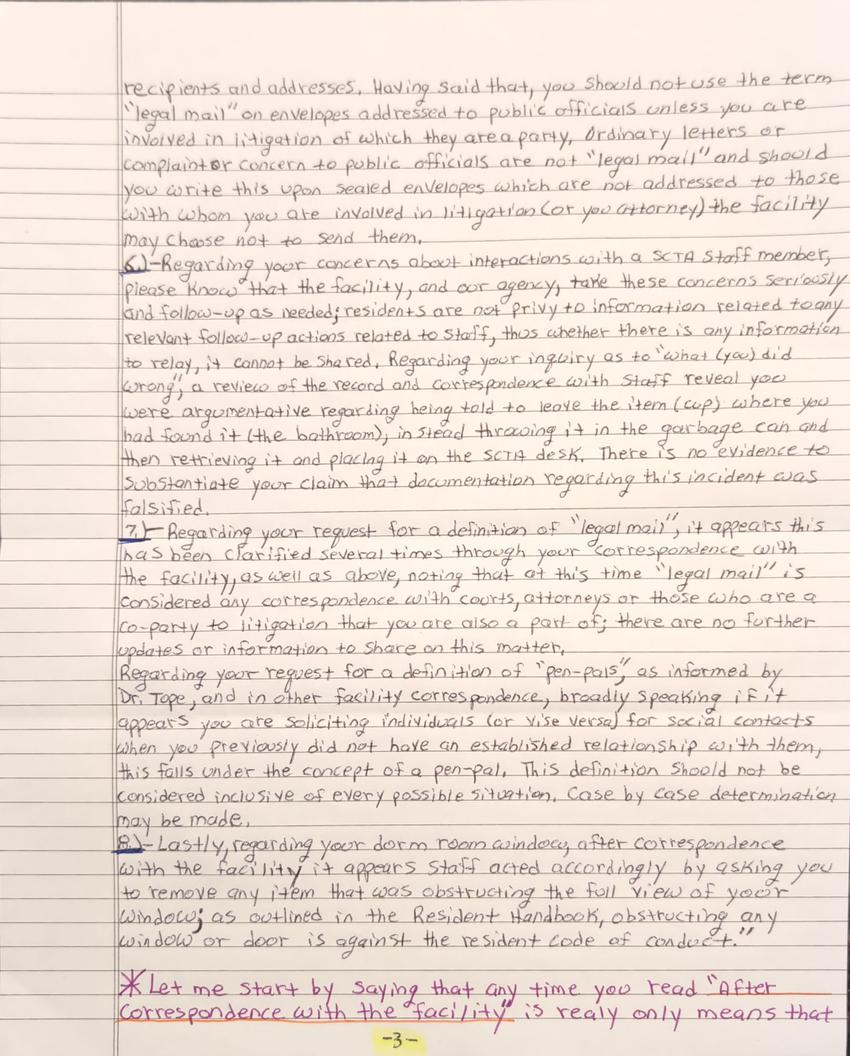 recipients and addresses. Having said that, you should not use the term
"legal mail" on envelopes addressed to public officials unless you are
involved in litigation of which they are a party, Ordinary letters or
complaint or concern to public officials are not "legal mail" and should
you write this upon sealed envelopes which are not addressed to those
with whom you are involved in litigation (or you attorney) the facility
may choose not to send them.
6.)-Regarding your concerns about interactions with a SCTA Staff member,
please know that the facility, and our agency, take these concerns seriously
and follow-up as needed; residents are not privy to information related to any
relevant follow-up actions related to staff, thus whether there is any information
to relay, it cannot be shared. Regarding your inquiry as to "what (you) did
wrong", a review of the record and correspondence with staff reveal you
were argumentative regarding being told to leave the item (cup) where you
had found it (the bathroom), in stead throwing it in the garbage can and
then retrieving it and placing it on the SCTA desk. There is no evidence to
substantiate your claim that documentation regarding this incident was
falsified.
7.)- Regarding your request for a definition of "legal mail", it appears this
has been clarified several times through your correspondence with
the facility, as well as above, noting that at this time "legal mail" is
considered any correspondence with courts, attorneys or those who are a
co-party to litigation that you are also a part of; there are no further
updates or information to share on this matter.
Regarding your request for a definition of "pen-pals", as informed by
Dr. Tope, and in other facility correspondence, broadly speaking if it
appears you are soliciting individuals (or vise versa) for social contacts
when you previously did not have an established relationship with them,
this falls under the concept of a pen-pal. This definition should not be
considered inclusive of every possible situation. Case by case determination
may be made.
8.)-Lastly, regarding your dorm room window, after correspondence
with the facility it appears staff acted accordingly by asking you
to remove any item that was obstructing the full view of your
window; as outlined in the Resident Handbook, obstructing any
window or door is against the resident code of conduct."
*Let me start by saying that any time you read "After
correspondence with the facility" is realy only means that
-3-